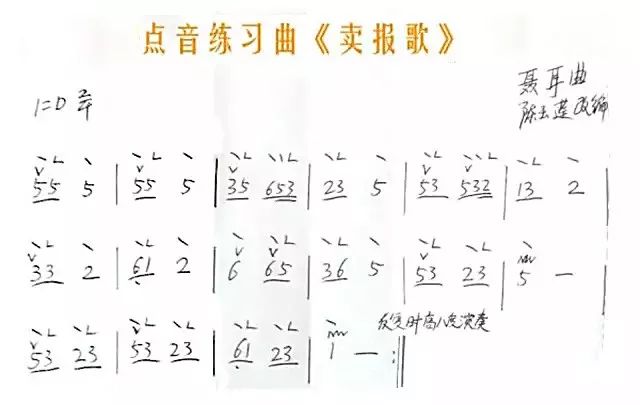 点音练习曲《卖报歌》
聂耳曲
1=D 2/4
陈玉莲改编
55 5 | 55 5 | 35 653 | 23 5 | 53 532 | 13 2 |
33 2 | 61 2 | 6 65 | 36 5 | 53 23 | 5 — |
反复时高八度演奏
53 23 | 53 23 | 61 23 | 1 — :‖